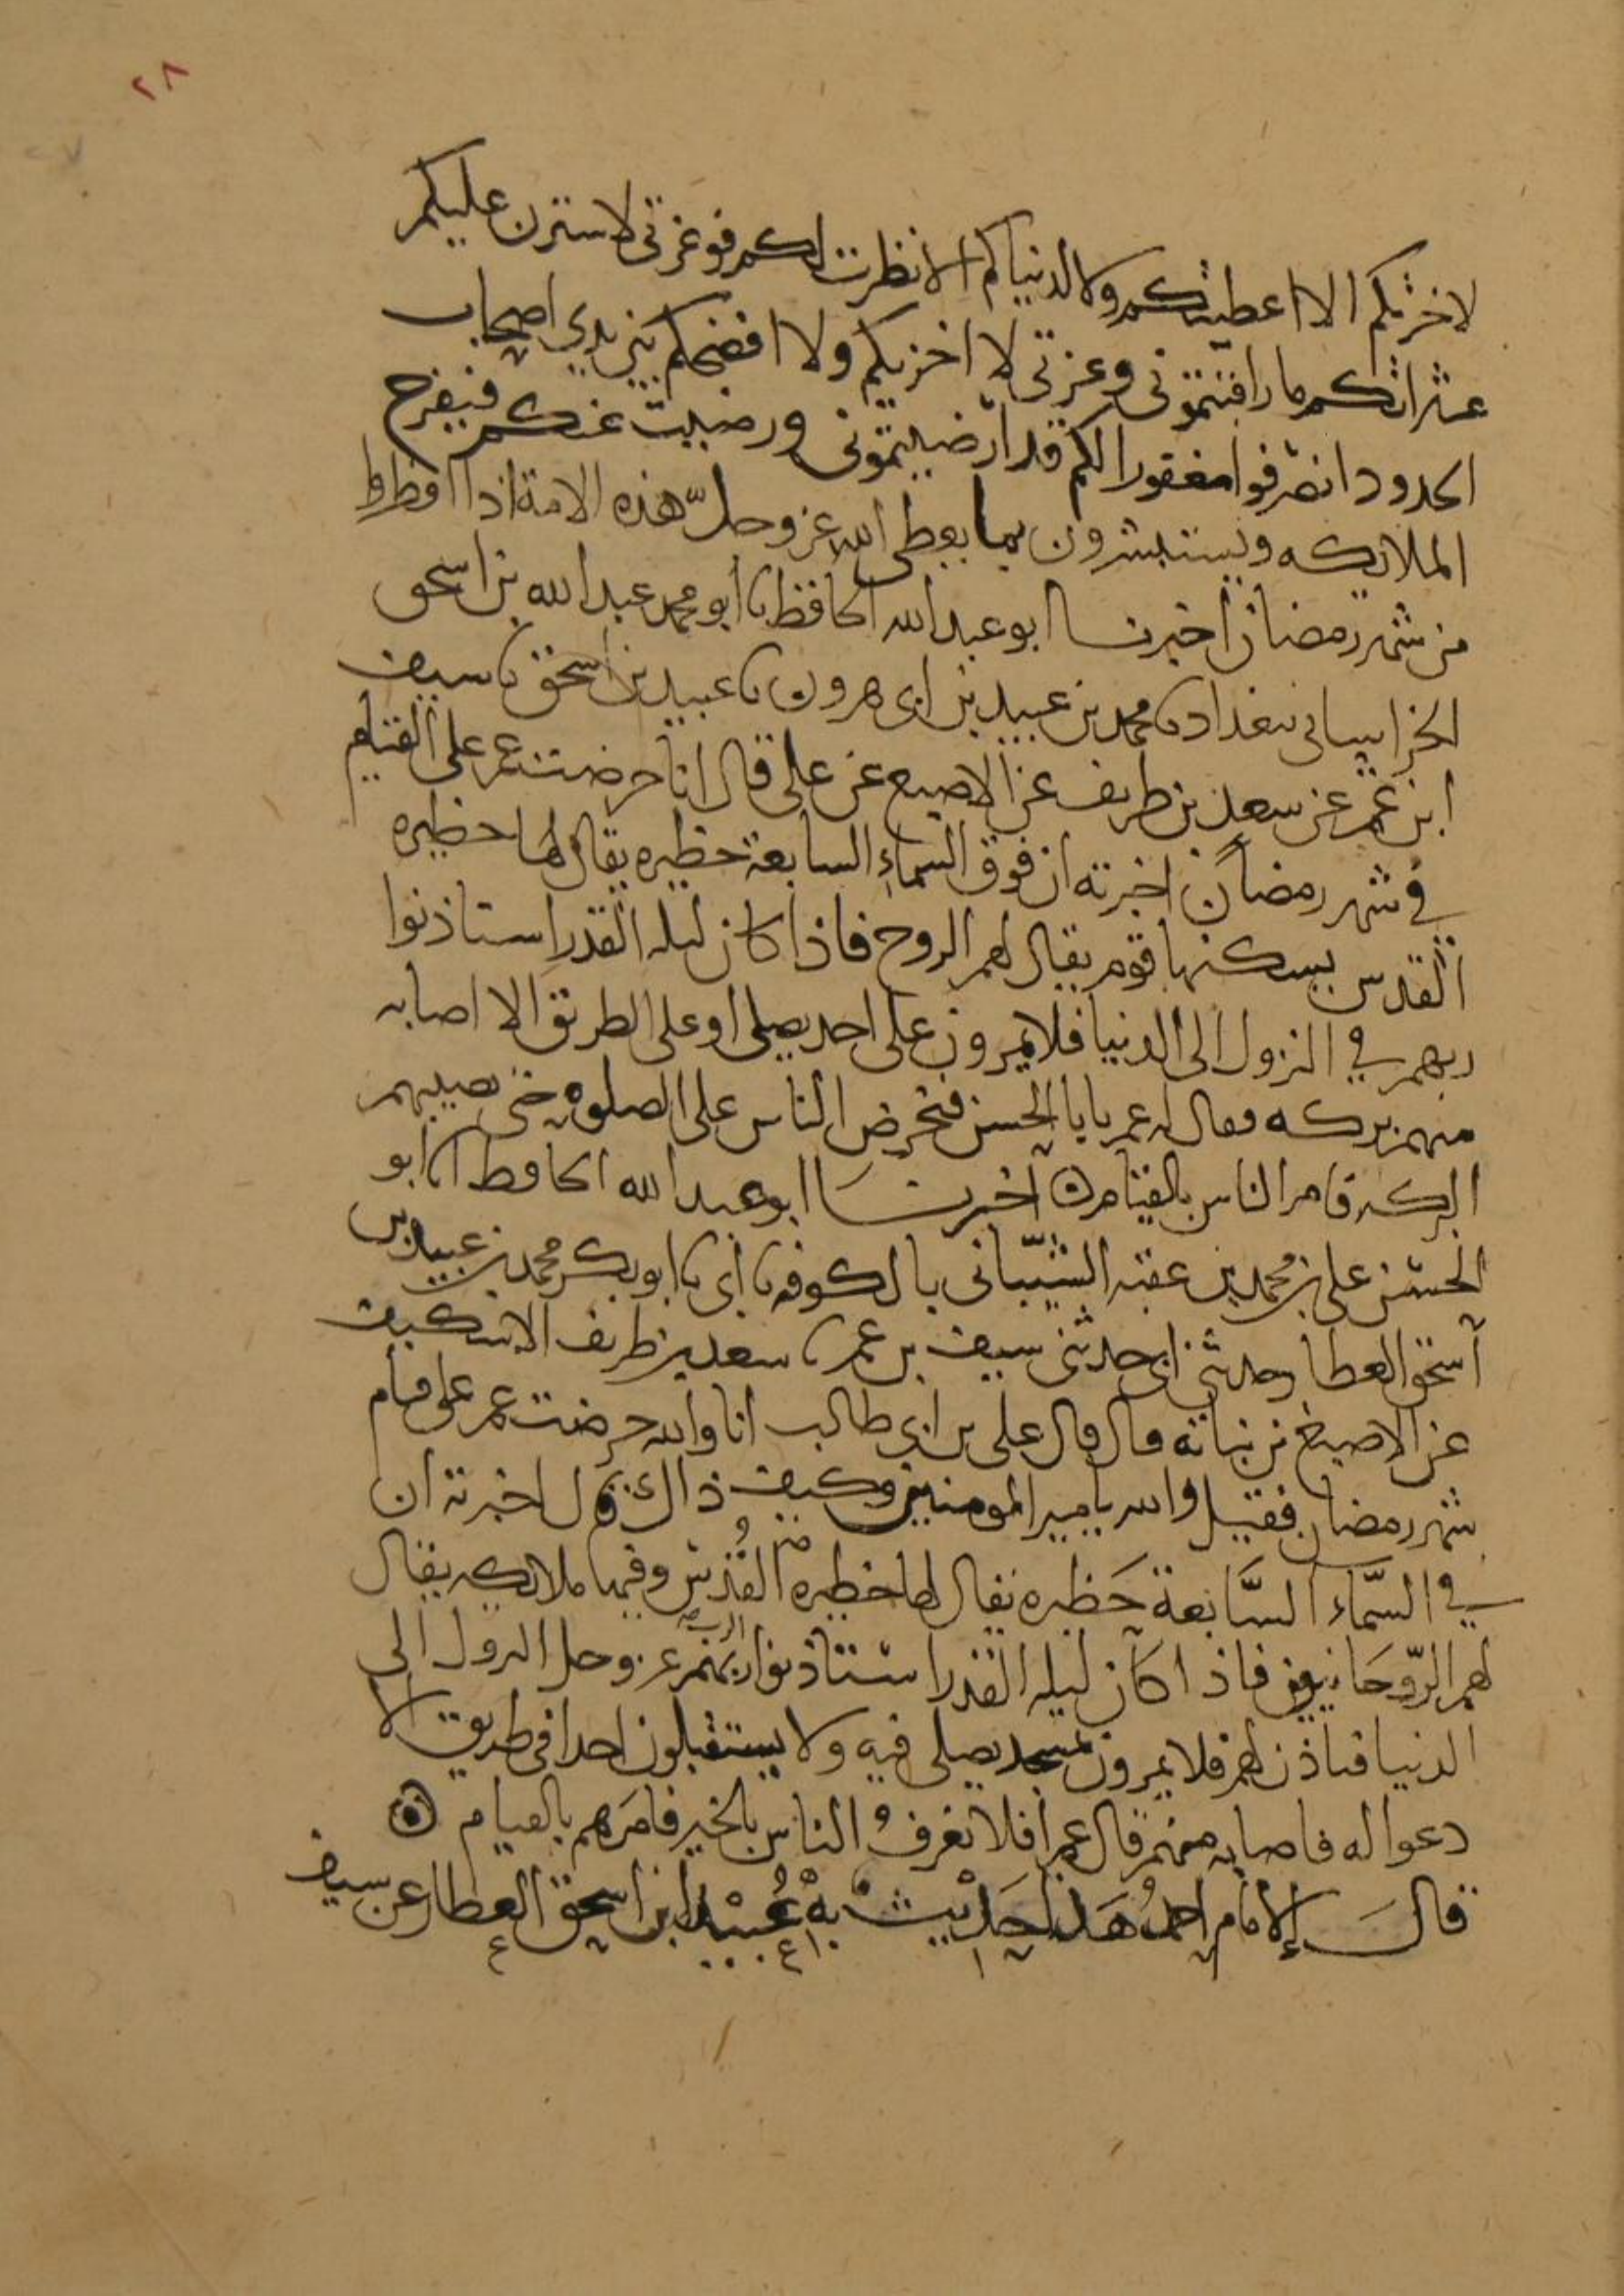 ٢٨
لاخرتكم الا اعطيتكم ولا لدنياكم الا نظرت لكم فوعزتي لاسترن عليكم
عثراتكم ما راقبتموني وعزتي لا اخزيكم ولا افضحكم بين يدي اصحاب
الحدود انصرفوا مغفورا لكم قد ارضيتموني ورضيت عنكم فيفرح
الملائكه ويستبشرون بما يعطي الله عز وجل هذه الامة اذا افطروا
من شهر رمضان اخبرنا ابو عبد الله الحافظ نا ابو محمد عبد الله بن اسحق
الخراساني ببغداد نا محمد بن عبيد بن ابي هرون نا عبيد بن اسحق نا سيف
ابن عمر عن سعد بن طريف عن الاصبع عن علي قال انا حرضت عمر على القيام
في شهر رمضان اخبرته ان فوق السماء السابعة حظيره يقال لها حظيره
القدس يسكنها قوم يقال لهم الروح فاذا كان ليله القدر استاذنوا
ربهم في النزول الى الدنيا فلا يمرون على احد يصلي او على الطريق الا اصابه
منهم بركه فقال له عمر يابا الحسن فتحرض الناس على الصلوه حتى تصيبهم
البركه فامر الناس بالقيام اخبرنا ابو عبد الله الحافظ انا ابو
الحسن علي بن محمد بن عقبه الشيباني بالكوفه نا ابي نا ابو بكر محمد بن عبيد بن
اسحق العطار حدثني ابي حدثني سيف بن عمر نا سعد بن طريف الاسكيف
عن الاصبغ بن نباته قال قال علي بن ابي طالب انا والله حرضت عمر على قيام
شهر رمضان فقيل والله يا امير المومنين وكيف ذالك قال اخبرته ان
في السماء السابعة حظيره يقال لها حظيره القدس وفيها ملائكه يقال
لهم الروحانيون فاذا كان ليله القدر استاذنوا ربهم عز وجل النزول الى
الدنيا فياذن لهم فلا يمرون بمسجد يصلى فيه ولا يستقبلون احدا في طريق الا
دعوا له فاصابه منهم قال عمر افلا نعرف الناس بالخير فامرهم بالقيام
قال الامام احمد هذا حديث به عبيد بن اسحق العطار عن سيف